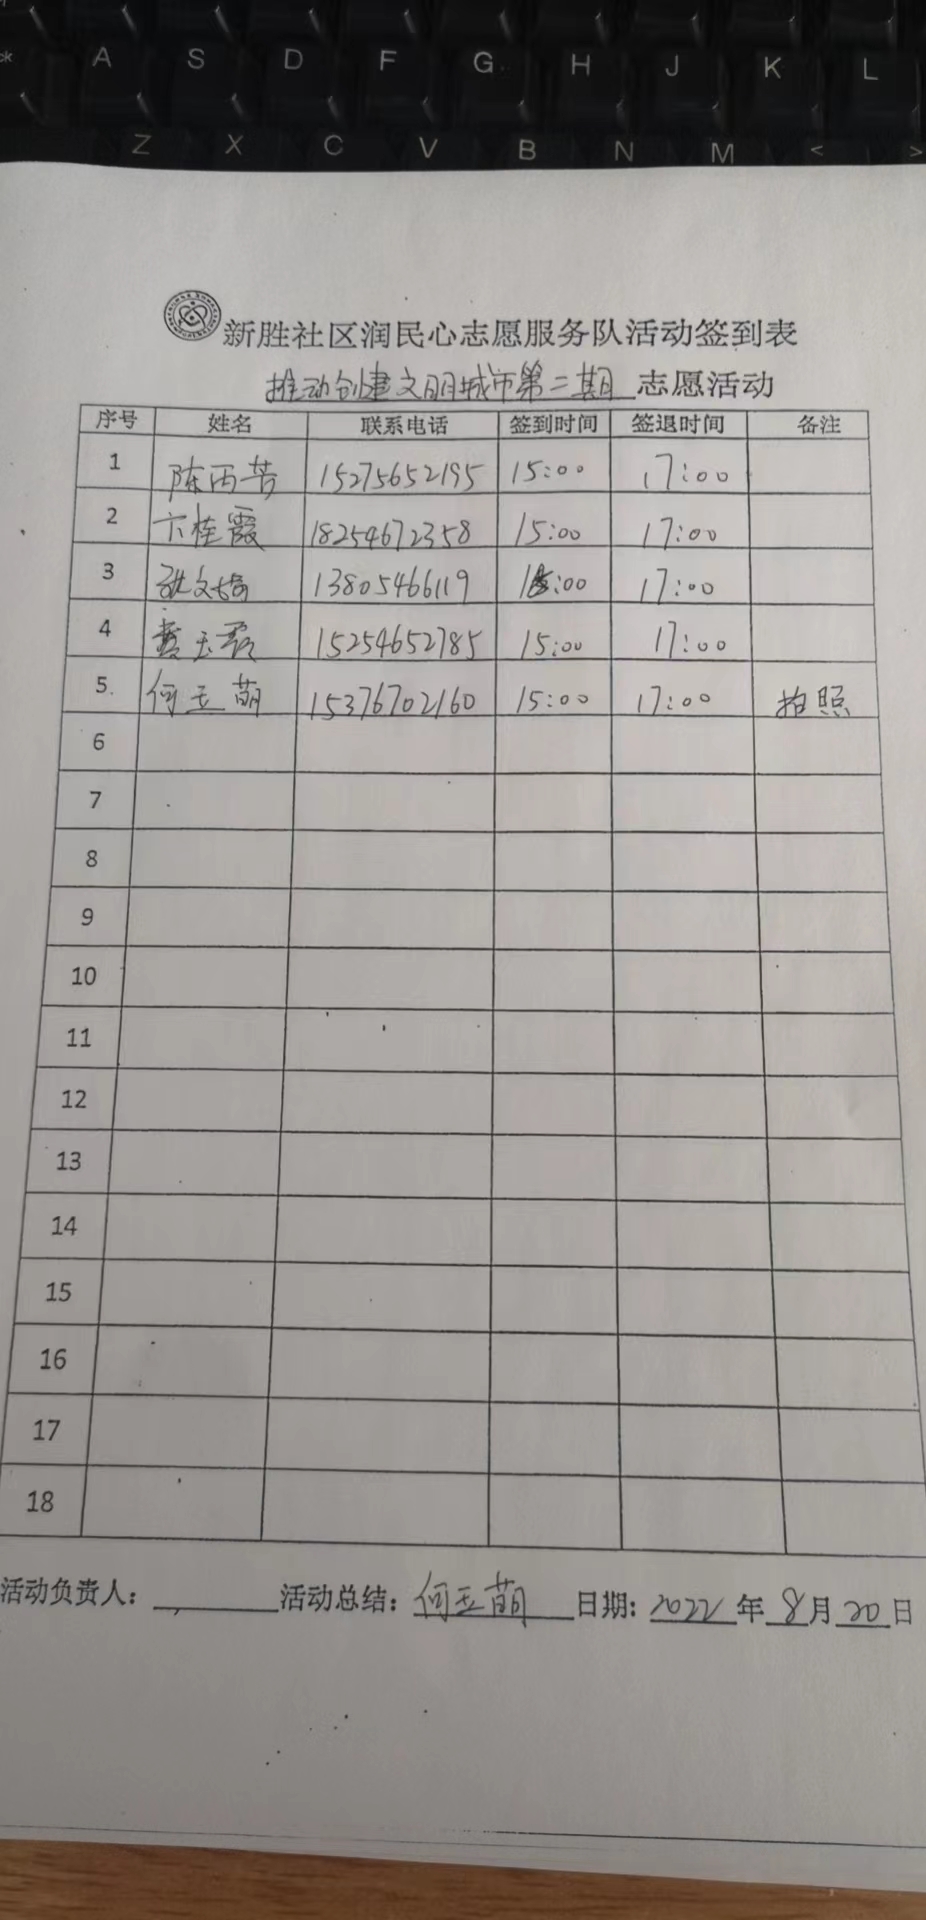 A S D F G H J K L
Z X C V B N M < >
新胜社区润民心志愿服务队活动签到表
推动创建文明城市第二期 志愿活动
序号 姓名 联系电话 签到时间 签退时间 备注
1 陈丙芳 15275652195 15:00 17:00
2 卞桂霞 18254672358 15:00 17:00
3 张文婷 13805466119 15:00 17:00
4 黄玉君 15254652785 15:00 17:00
5. 何玉萌 15376702160 15:00 17:00 拍照
6
7
8
9
10
11
12
13
14
15
16
17
18
活动负责人: 活动总结: 何玉萌 日期: 2022 年 8 月 20 日